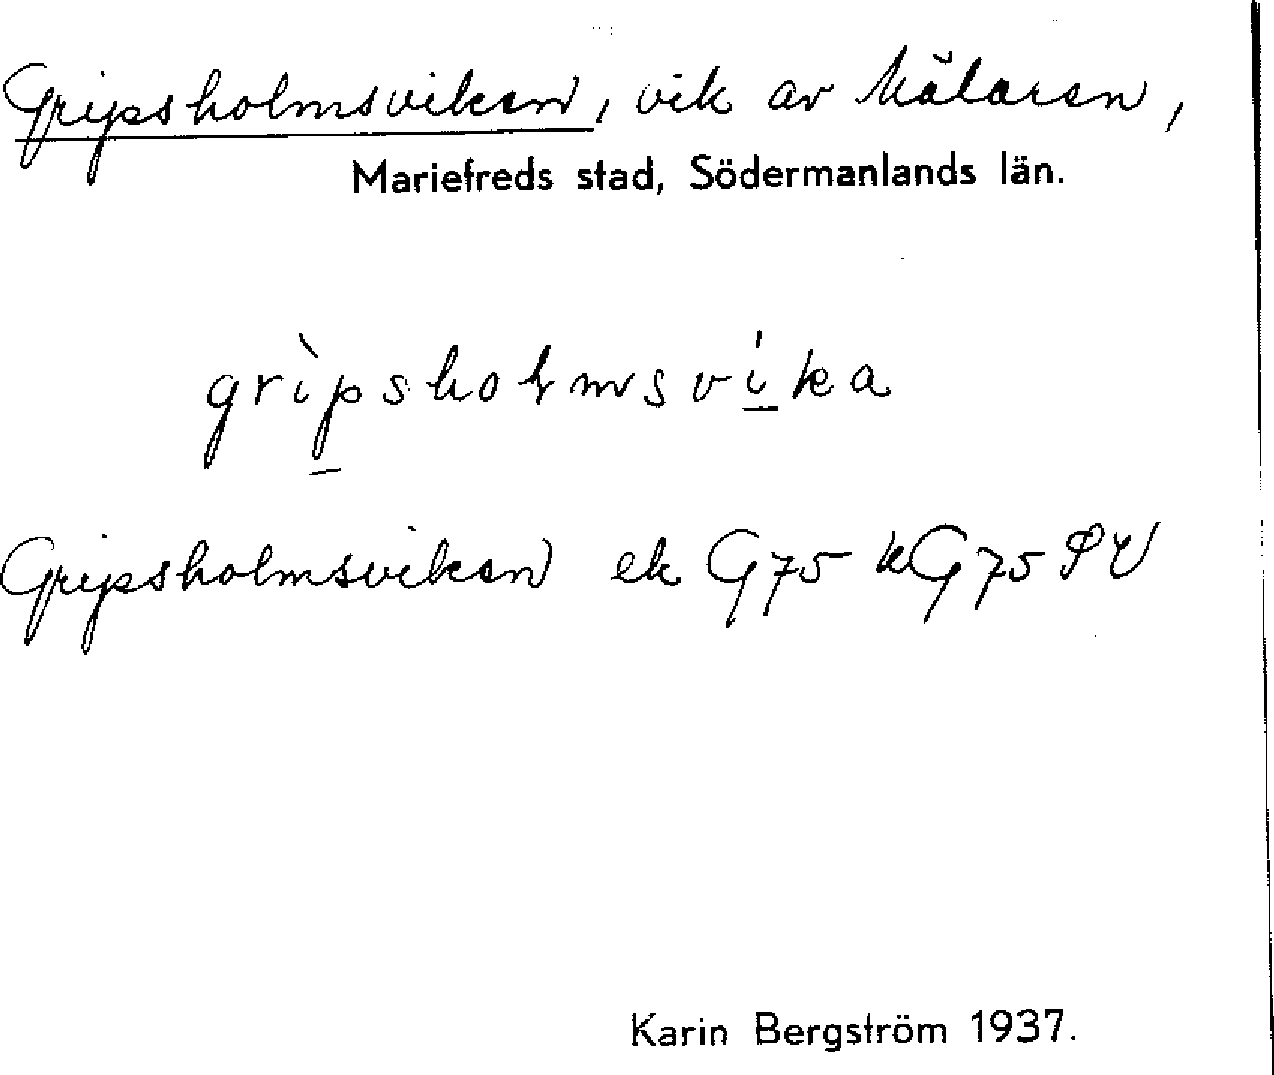 Gripsholmsviken, vik av Mälaren,
Mariefreds stad, Södermanlands län.
grìpshołmsvíka
Gripsholmsviken ek G75 kG75 SV
Karin Bergström 1937.